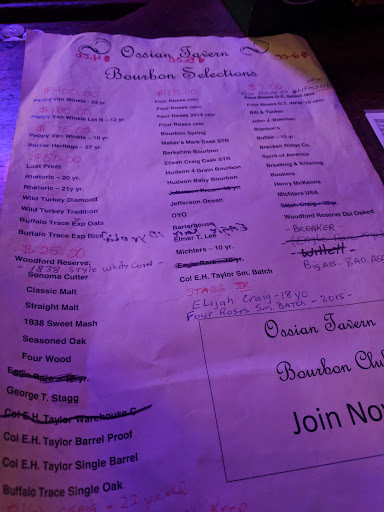 Ossian Tavern
Bourbon Selections
$100.00
Pappy Van Winkle - 23 yr
Pappy Van Winkle Lot B - 12 yr.
Parker Heritage - 27 yr.
$50.00
Lost Profit
Rhetoric - 20yr
Rhetoric - 21yr
Wild Turkey Diamond
Wild Turkey Tradition
Buffalo Trace Exp Oats
Buffalo Trace Exp Rice
$25.00
Woodford Reserve:
- 1838 Style White Corn -
Sonoma Cutter
Classic Malt
Straight Malt
1838 Sweet Mash
Seasoned Oak
Four Wood
Eagle Rare - 17 yr.
George T. Stagg
Col E.H. Taylor Warehouse C
Col E.H. Taylor Barrel Proof
Col E.H. Taylor Single Barrel
Buffalo Trace Single Oak
CRAIG - 23 year
$15.00
Four Roses
Four Roses
Four Roses 2014
Four Roses
Bourbon Spring
Maker's Mark Cask STR
Berkshire Bourbon
Elijah Craig Cask STR
Hudson 4 Grain Bourbon
Hudson Baby Bourbon
Jefferson Ocean
OYO
Barterhouse
Elmer T. Lee
Michters - 10 yr.
Eagle Rare
Col E.H. Taylor Sm. Batch
STAGG JR
Elijah Craig - 18 yo
Four Roses Sm. Batch - 2015 -
Bib & Tucker
John J. Bowman
Blanton's
Bulleit - 10 yr.
Breaker Ridge Co.
Spirit of America
Breaking & Entering
Bookers
Henry McKenna
Michters USA
Elijah Craig
Woodford Reserve Dbl Oaked
- BREAKER
- Willett
Big Ass - Bad Ass
Ossian Tavern
Bourbon Clu
Join Now